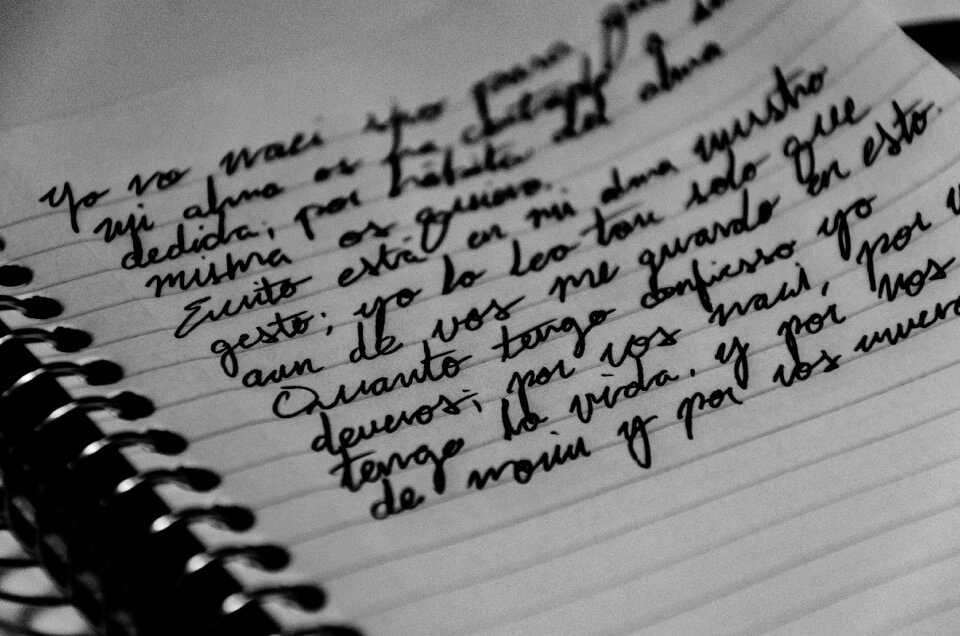 Yo no naci sino para
mi alma os ha cortado a su
dedida, por hábito del alma
misma os quiero.
Escrito está en mi alma vuestro
gesto; yo lo leo tan solo que
aun de vos me guardo en esto.
Quanto tengo confiesso yo
deveros; por vos naci, por
tengo la vida, y por vos
de morir y por vos muero